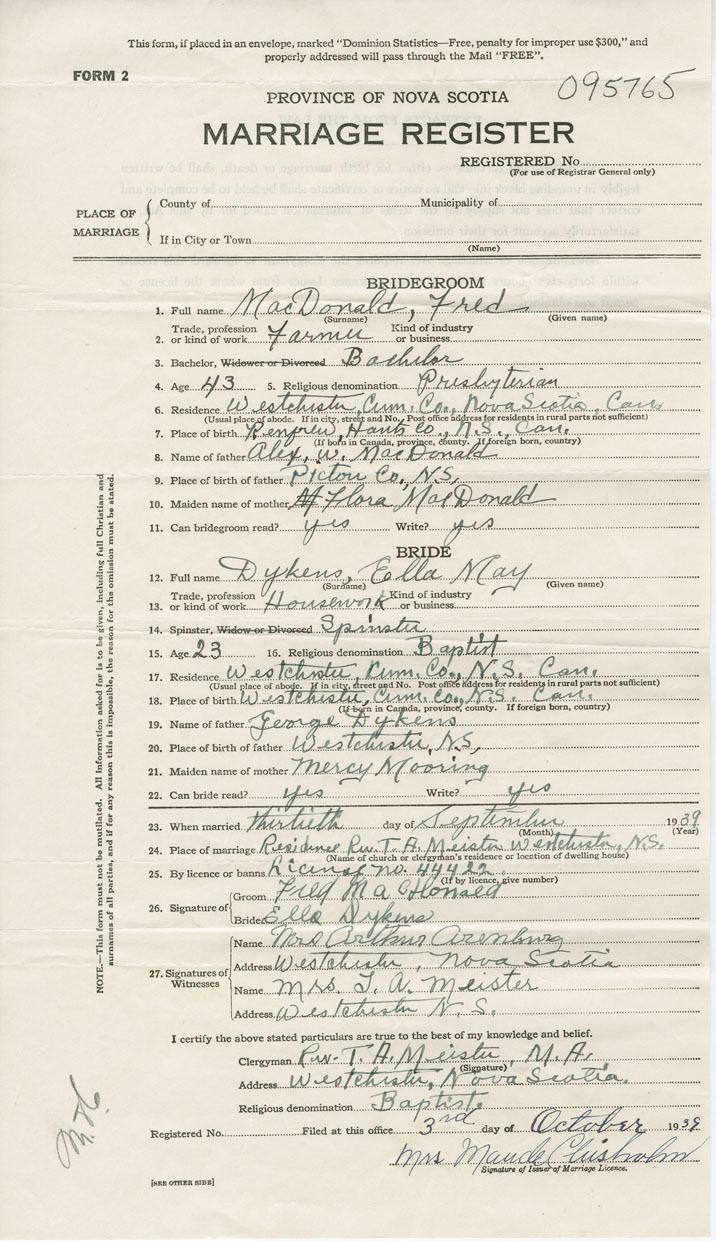 This form, if placed in an envelope, marked “Dominion Statistics—Free, penalty for improper use $300,” and
properly addressed will pass through the Mail “FREE”.
FORM 2
095765
PROVINCE OF NOVA SCOTIA
MARRIAGE REGISTER
REGISTERED No.
(For use of Registrar General only)
PLACE OF MARRIAGE
County of Municipality of
If in City or Town
(Name)
BRIDEGROOM
1. Full name MacDonald, Fred
(Surname) (Given name)
2. Trade, profession or kind of work Farmer Kind of industry or business
3. Bachelor, Widower or Divorced Bachelor
4. Age 43 5. Religious denomination Presbyterian
6. Residence Westchester, Cum. Co., Nova Scotia, Can.
(Usual place of abode. If in city, street and No. Post office address for residents in rural parts not sufficient)
7. Place of birth Renfrew, Hants Co., N.S., Can.
(If born in Canada, province, county. If foreign born, country)
8. Name of father Alex. W. MacDonald
9. Place of birth of father Pictou Co., N.S.
10. Maiden name of mother Flora MacDonald
11. Can bridegroom read? yes Write? yes
BRIDE
12. Full name Dykens, Ella May
(Surname) (Given name)
13. Trade, profession or kind of work Housework Kind of industry or business
14. Spinster, Widow or Divorced Spinster
15. Age 23 16. Religious denomination Baptist
17. Residence Westchester, Cum. Co., N.S. Can.
(Usual place of abode. If in city, street and No. Post office address for residents in rural parts not sufficient)
18. Place of birth Westchester, Cum. Co., N.S. Can.
(If born in Canada, province, county. If foreign born, country)
19. Name of father George Dykens
20. Place of father Westchester, N.S.
21. Maiden name of mother Mercy Mooring
22. Can bride read? yes Write? yes
23. When married thirtieth day of September 1939
(Month) (Year)
24. Place of marriage Residence Rev. T. A. Meister Westchester, N.S.
(Name of church or clergyman's residence or location of dwelling house)
25. By licence or banns License no. 44422
(If by licence, give number)
26. Signature of
Groom Fred MacDonald
Bride Ella Dykens
27. Signatures of Witnesses
Name Mrs Arthur Arenburg
Address Westchester, Nova Scotia
Name Mrs. T. A. Meister
Address Westchester N.S.
I certify the above stated particulars are true to the best of my knowledge and belief.
Clergyman Rev. T. A. Meister, M.A.
(Signature)
Address Westchester, Nova Scotia.
Religious denomination Baptist.
Registered No. Filed at this office 3rd day of October 1939
Mrs Maude Chisholm
Signature of Issuer of Marriage Licence.
[SEE OTHER SIDE]
NOTE.—This form must not be mutilated. All information asked for is to be given, including full Christian and
surnames of all parties, and if for any reason this is impossible, the reason for the omission must be stated.